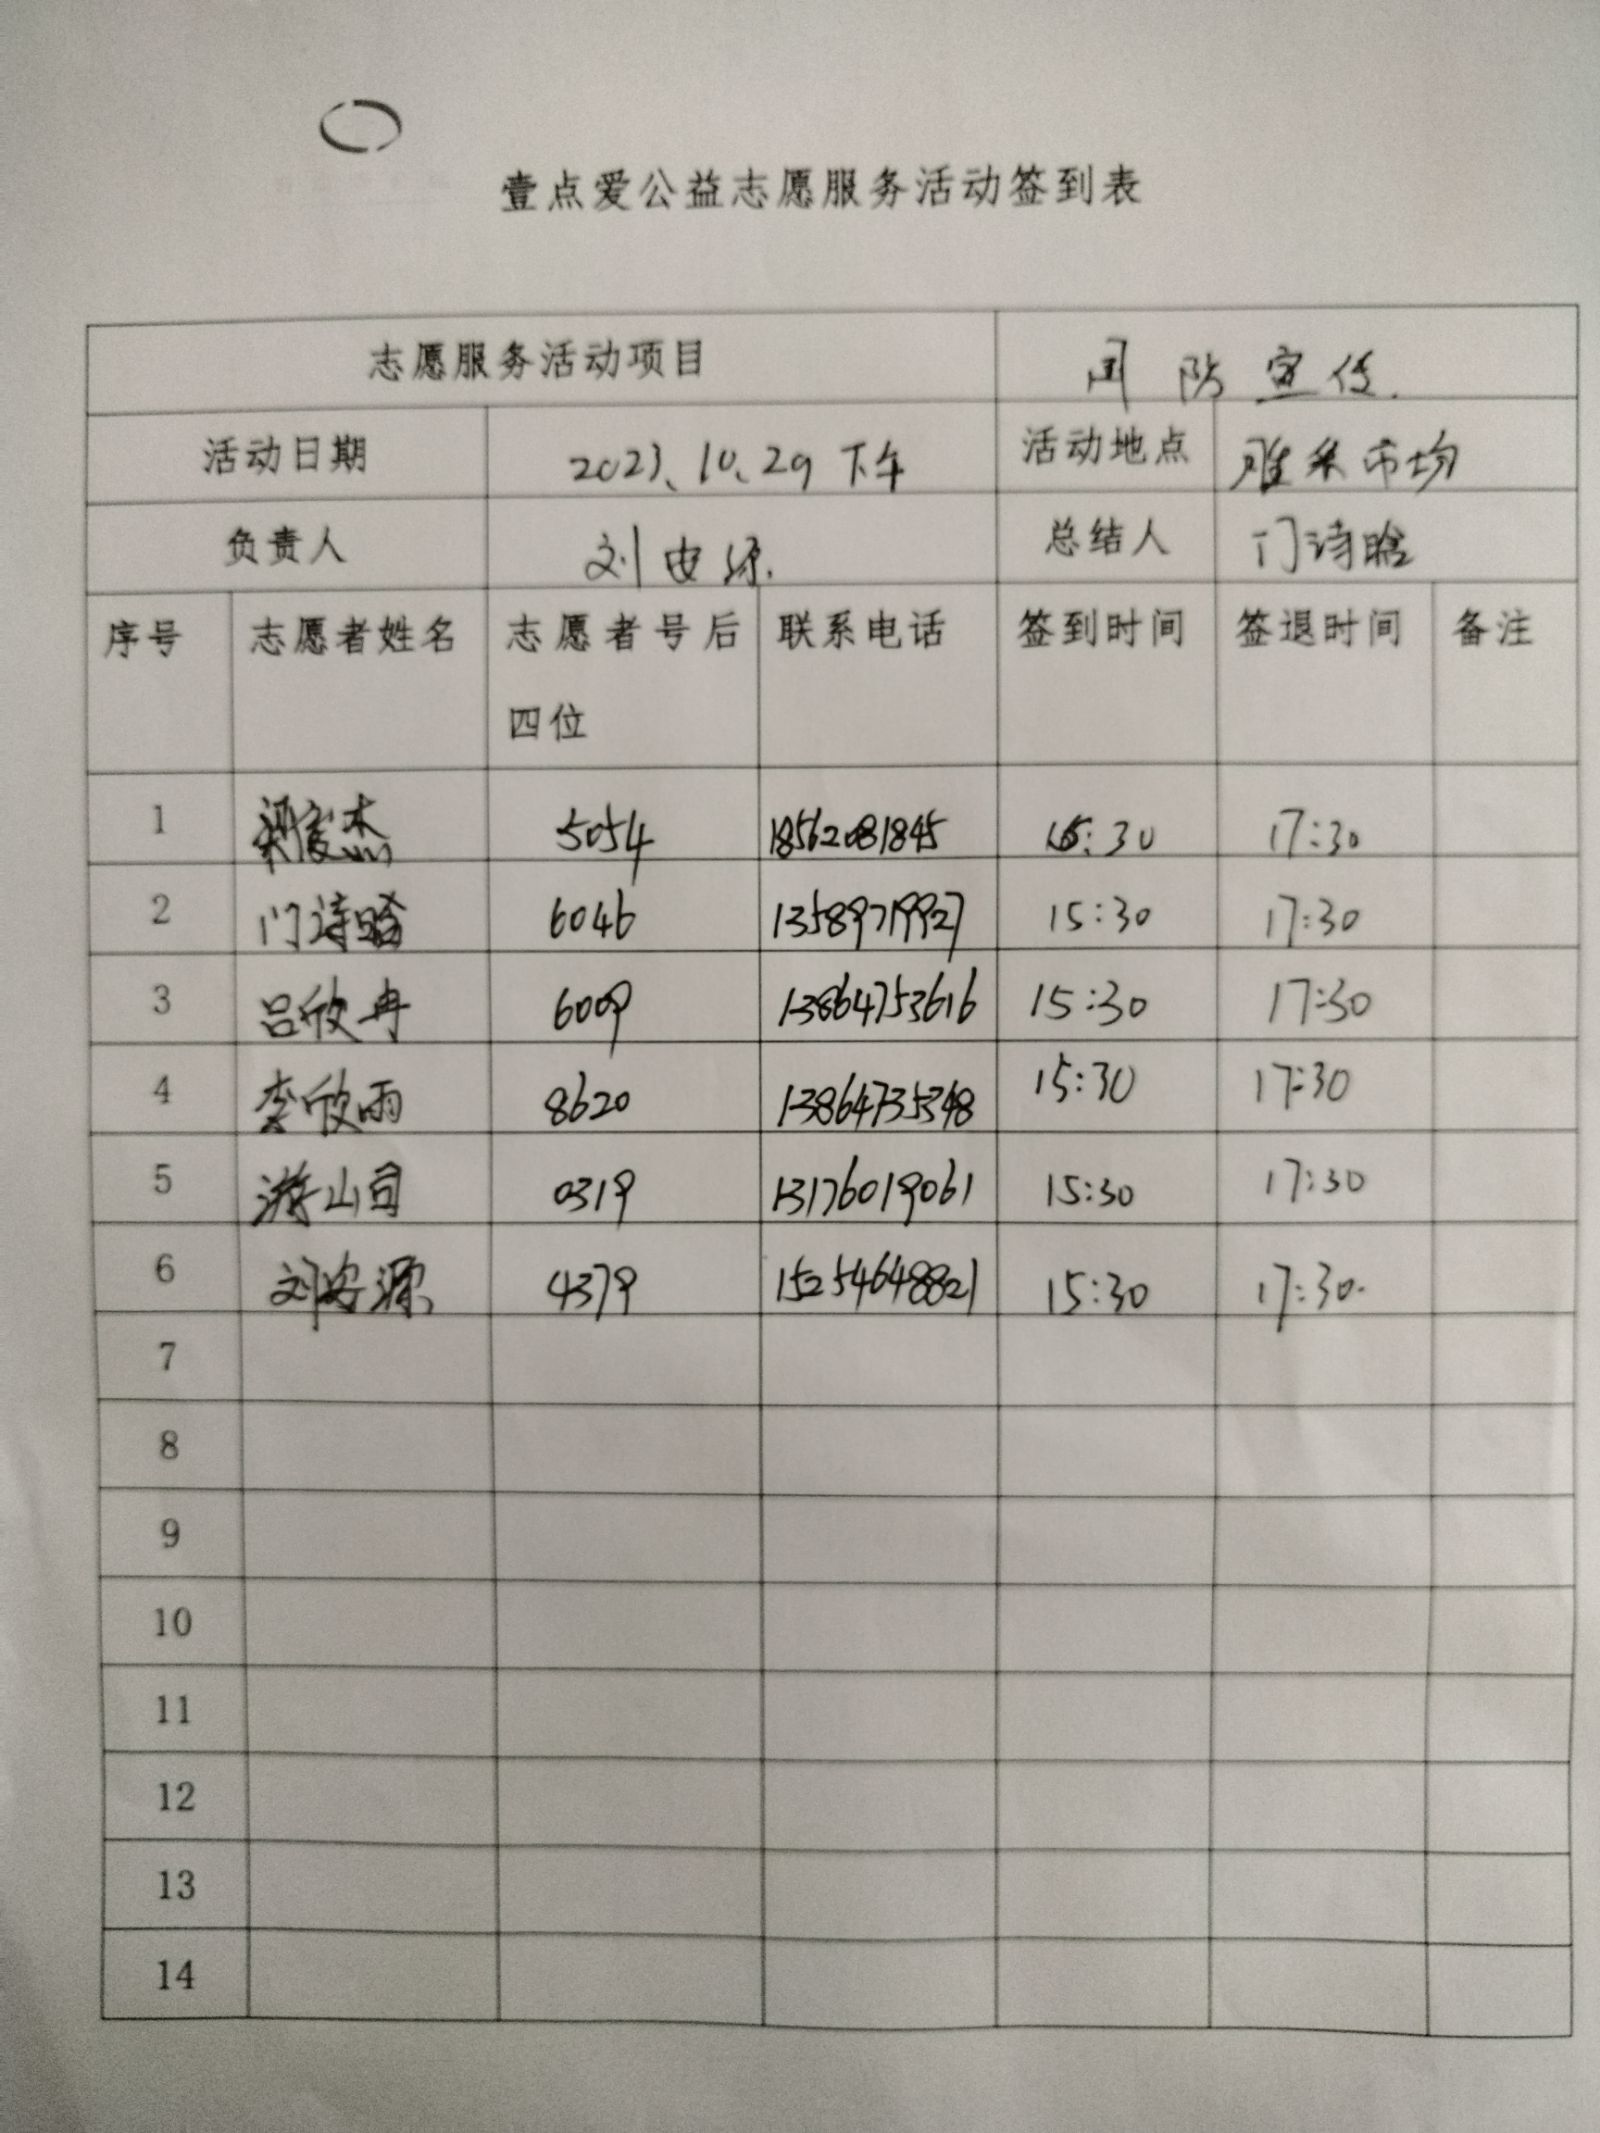 壹点爱公益志愿服务活动签到表
志愿服务活动项目 国防宣传.
活动日期 2023、10、29 下午 活动地点 雅禾市场
负责人 刘安源. 总结人 门诗晗
序号 志愿者姓名 志愿者号后四位 联系电话 签到时间 签退时间 备注
1 梁俊杰 5054 18562081845 15:30 17:30
2 门诗晗 6046 13589719927 15:30 17:30
3 吕欣冉 6009 13864753616 15:30 17:30
4 李欣雨 8620 13864735348 15:30 17:30
5 游山司 0319 13176019061 15:30 17:30
6 刘安源 4379 15254648821 15:30 17:30.
7
8
9
10
11
12
13
14